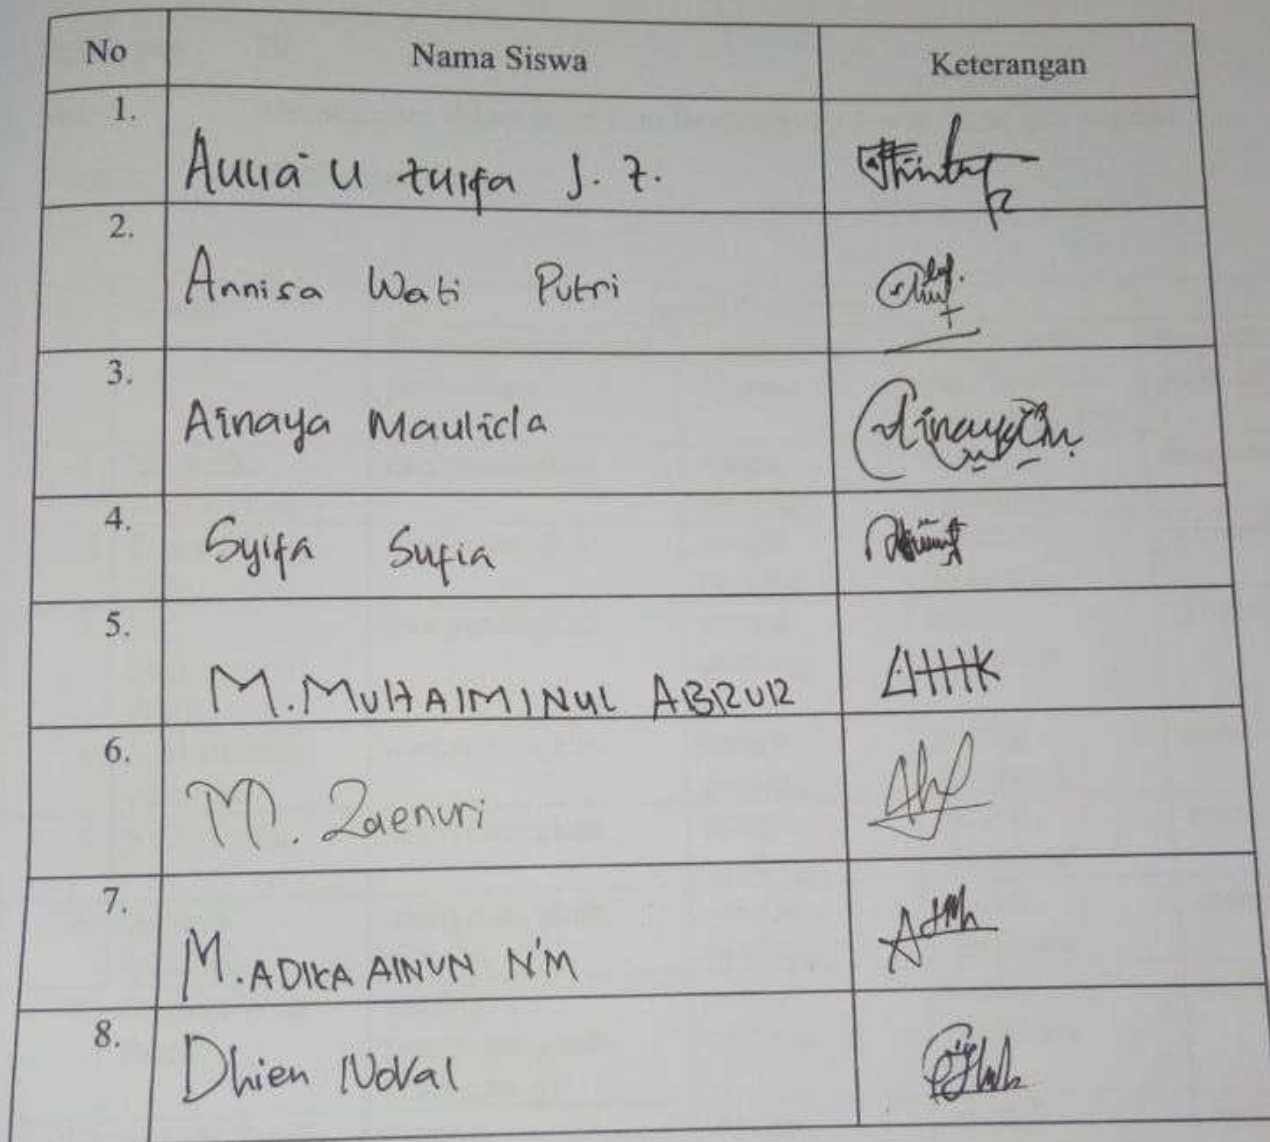 No Nama Siswa Keterangan
1. Aulia U Zulfa J. Z.
2. Annisa Wati Putri
3. Ainaya Maulida
4. Syifa Sufia
5. M. MUHAIMINUL ABRUR
6. M. Zaenuri
7. M. ADIKA AINUN N'M
8. Dhien Noval